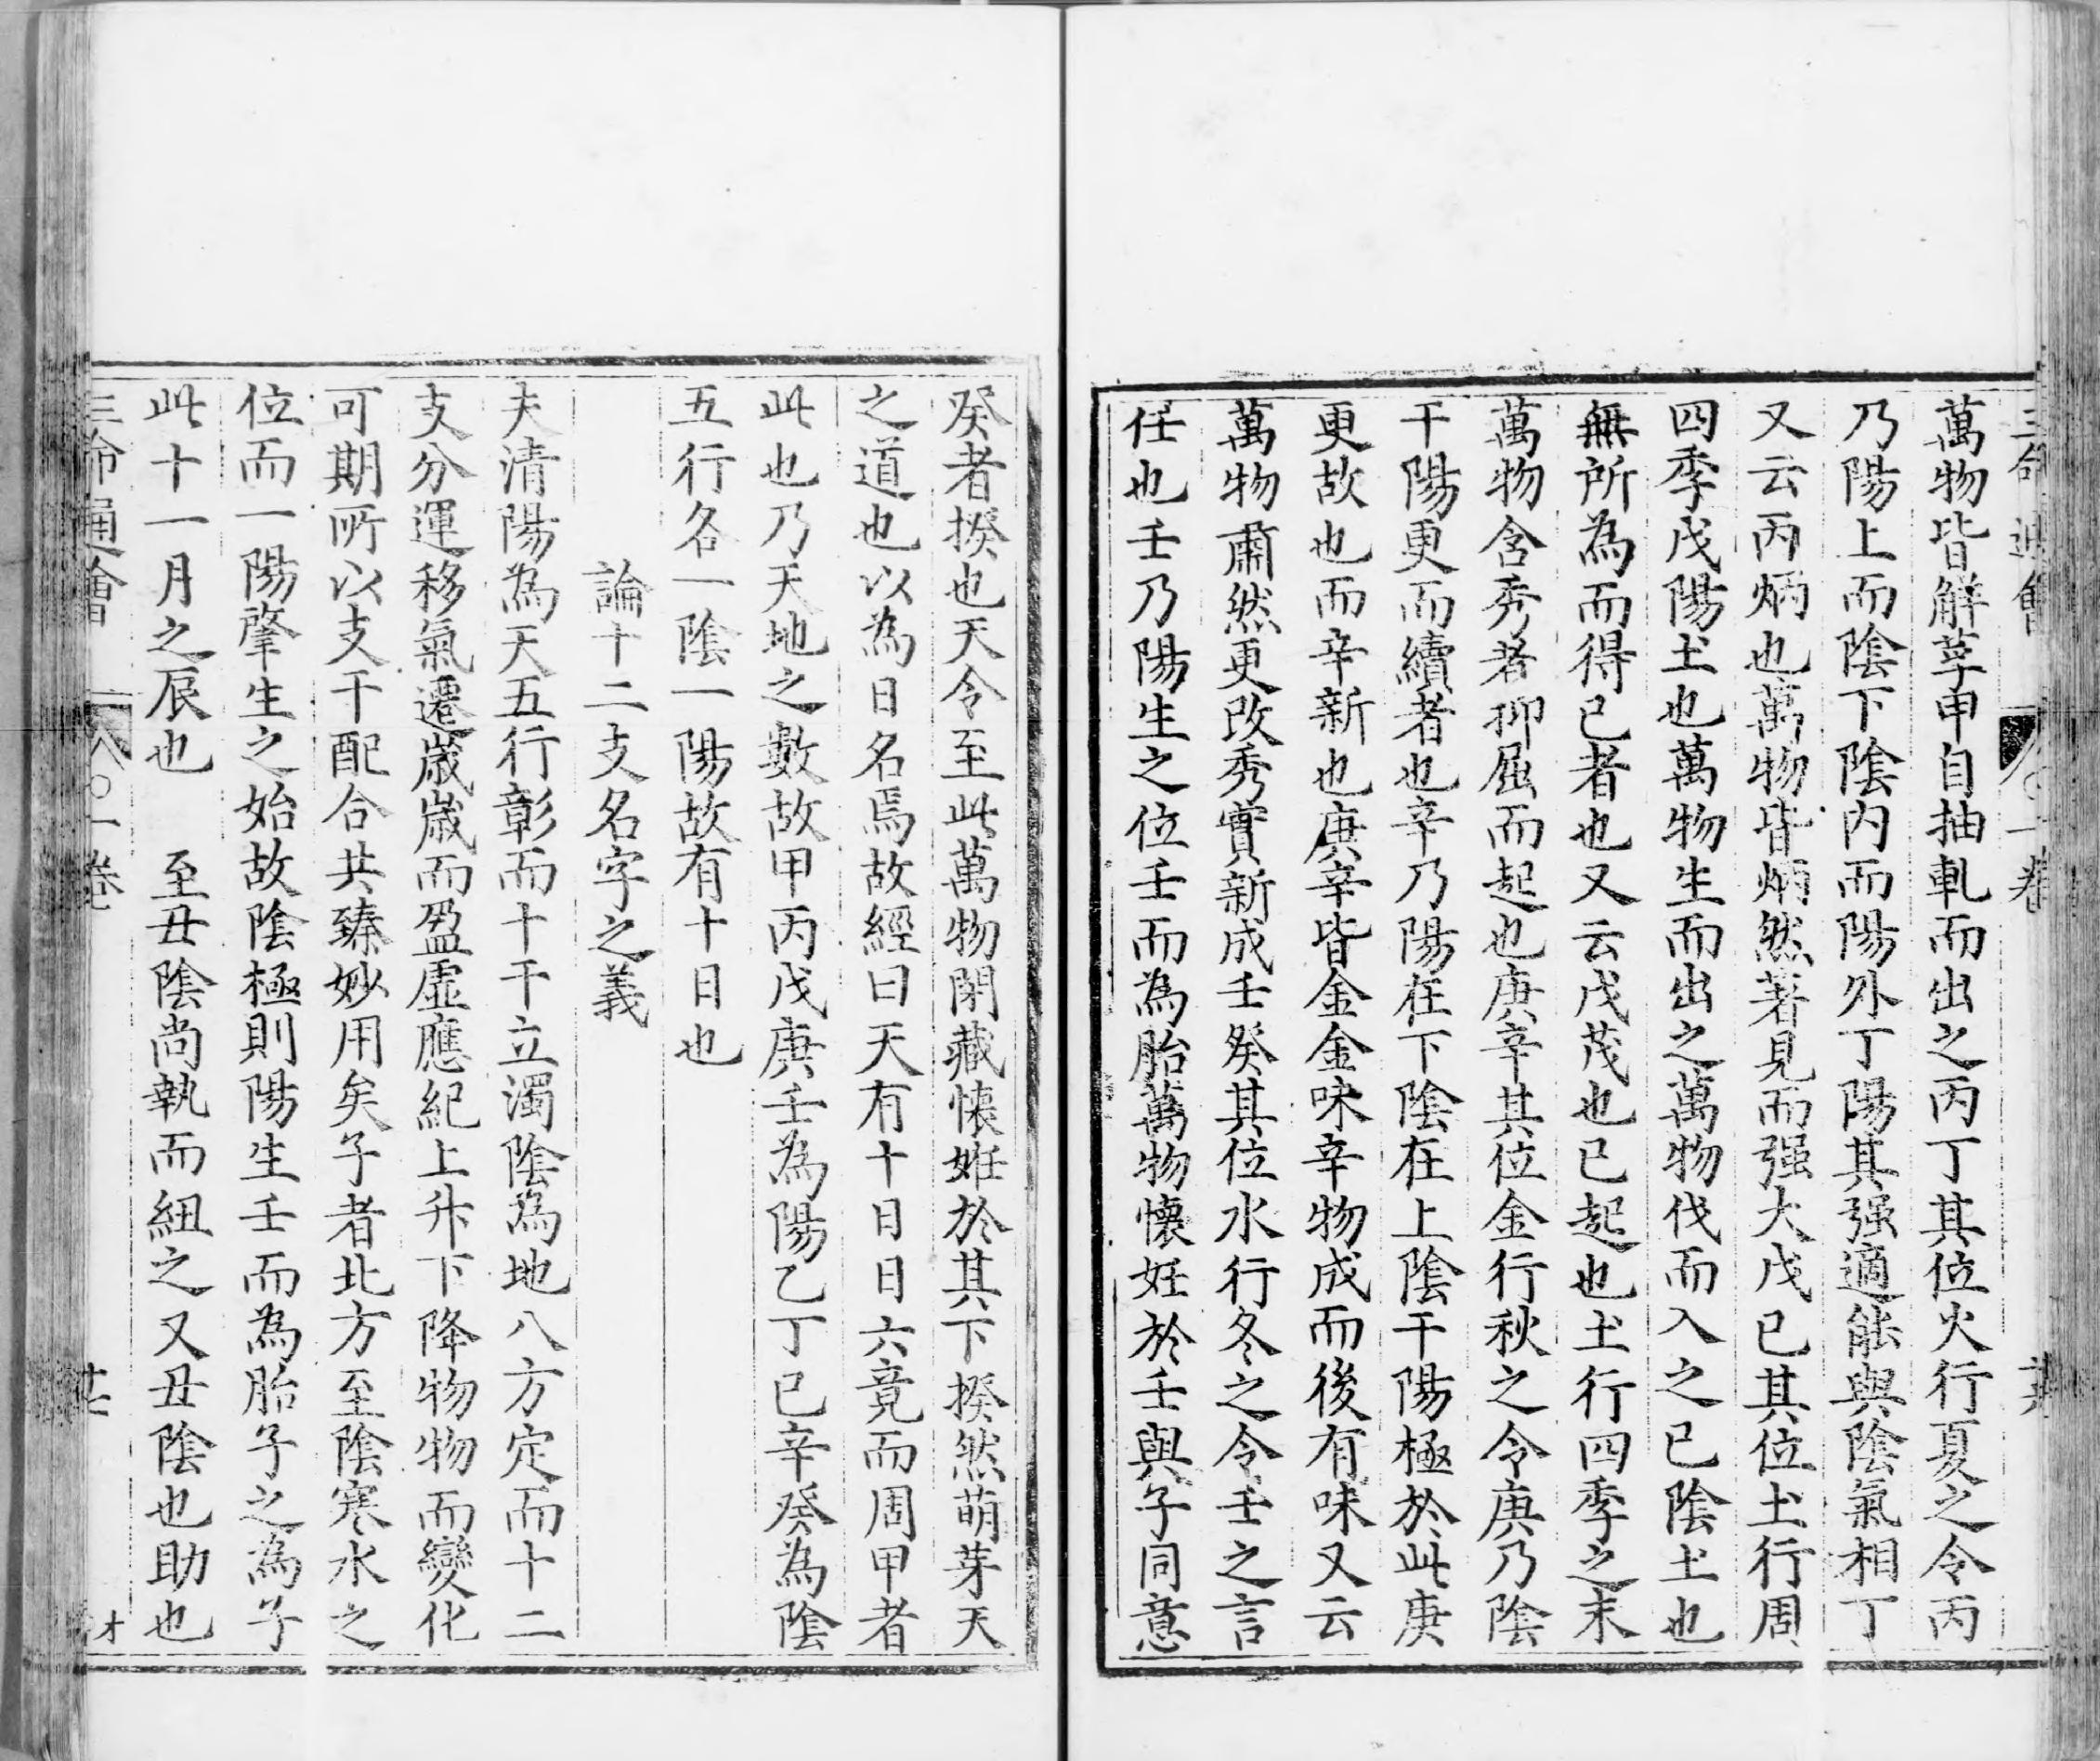 三命通會 一卷
萬物皆解莩申自抽軋而出之丙丁其位火行夏之令丙
乃陽上而陰下陰内而陽外丁陽其强適能與陰氣相丁
又云丙炳也萬物皆炳然著見而强大戊已其位土行周
四季戊陽土也萬物生而出之萬物伐而入之已陰土也
無所為而得已者也又云戊茂也已起也土行四季之末
萬物含秀者抑屈而起也庚辛其位金行秋之令庚乃陰
干陽更而續者也辛乃陽在下陰在上陰干陽極於此庚
更故也而辛新也庚辛皆金金味辛物成而後有味又云
萬物肅然更改秀實新成壬癸其位水行冬之令壬之言
任也壬乃陽生之位壬而為胎萬物懷妊於壬與子同意
癸者揆也天令至此萬物閉藏懐妊於其下揆然萌芽天
之道也以為日名焉故經曰天有十日日六竟而周甲者
此也乃天地之數故甲丙戊庚壬為陽乙丁已辛癸為陰
五行各一陰一陽故有十日也
論十二支名字之義
夫清陽為天五行彰而十干立濁陰為地八方定而十二
支分運移氣遷歲歲而盈虛應紀上升下降物物而變化
可期所以支干配合共臻妙用矣子者北方至陰寒水之
位而一陽肇生之始故陰極則陽生壬而為胎子之為子
此十一月之辰也 至丑陰尚執而紐之又丑陰也助也
三命通會 八 一卷 廿七 才